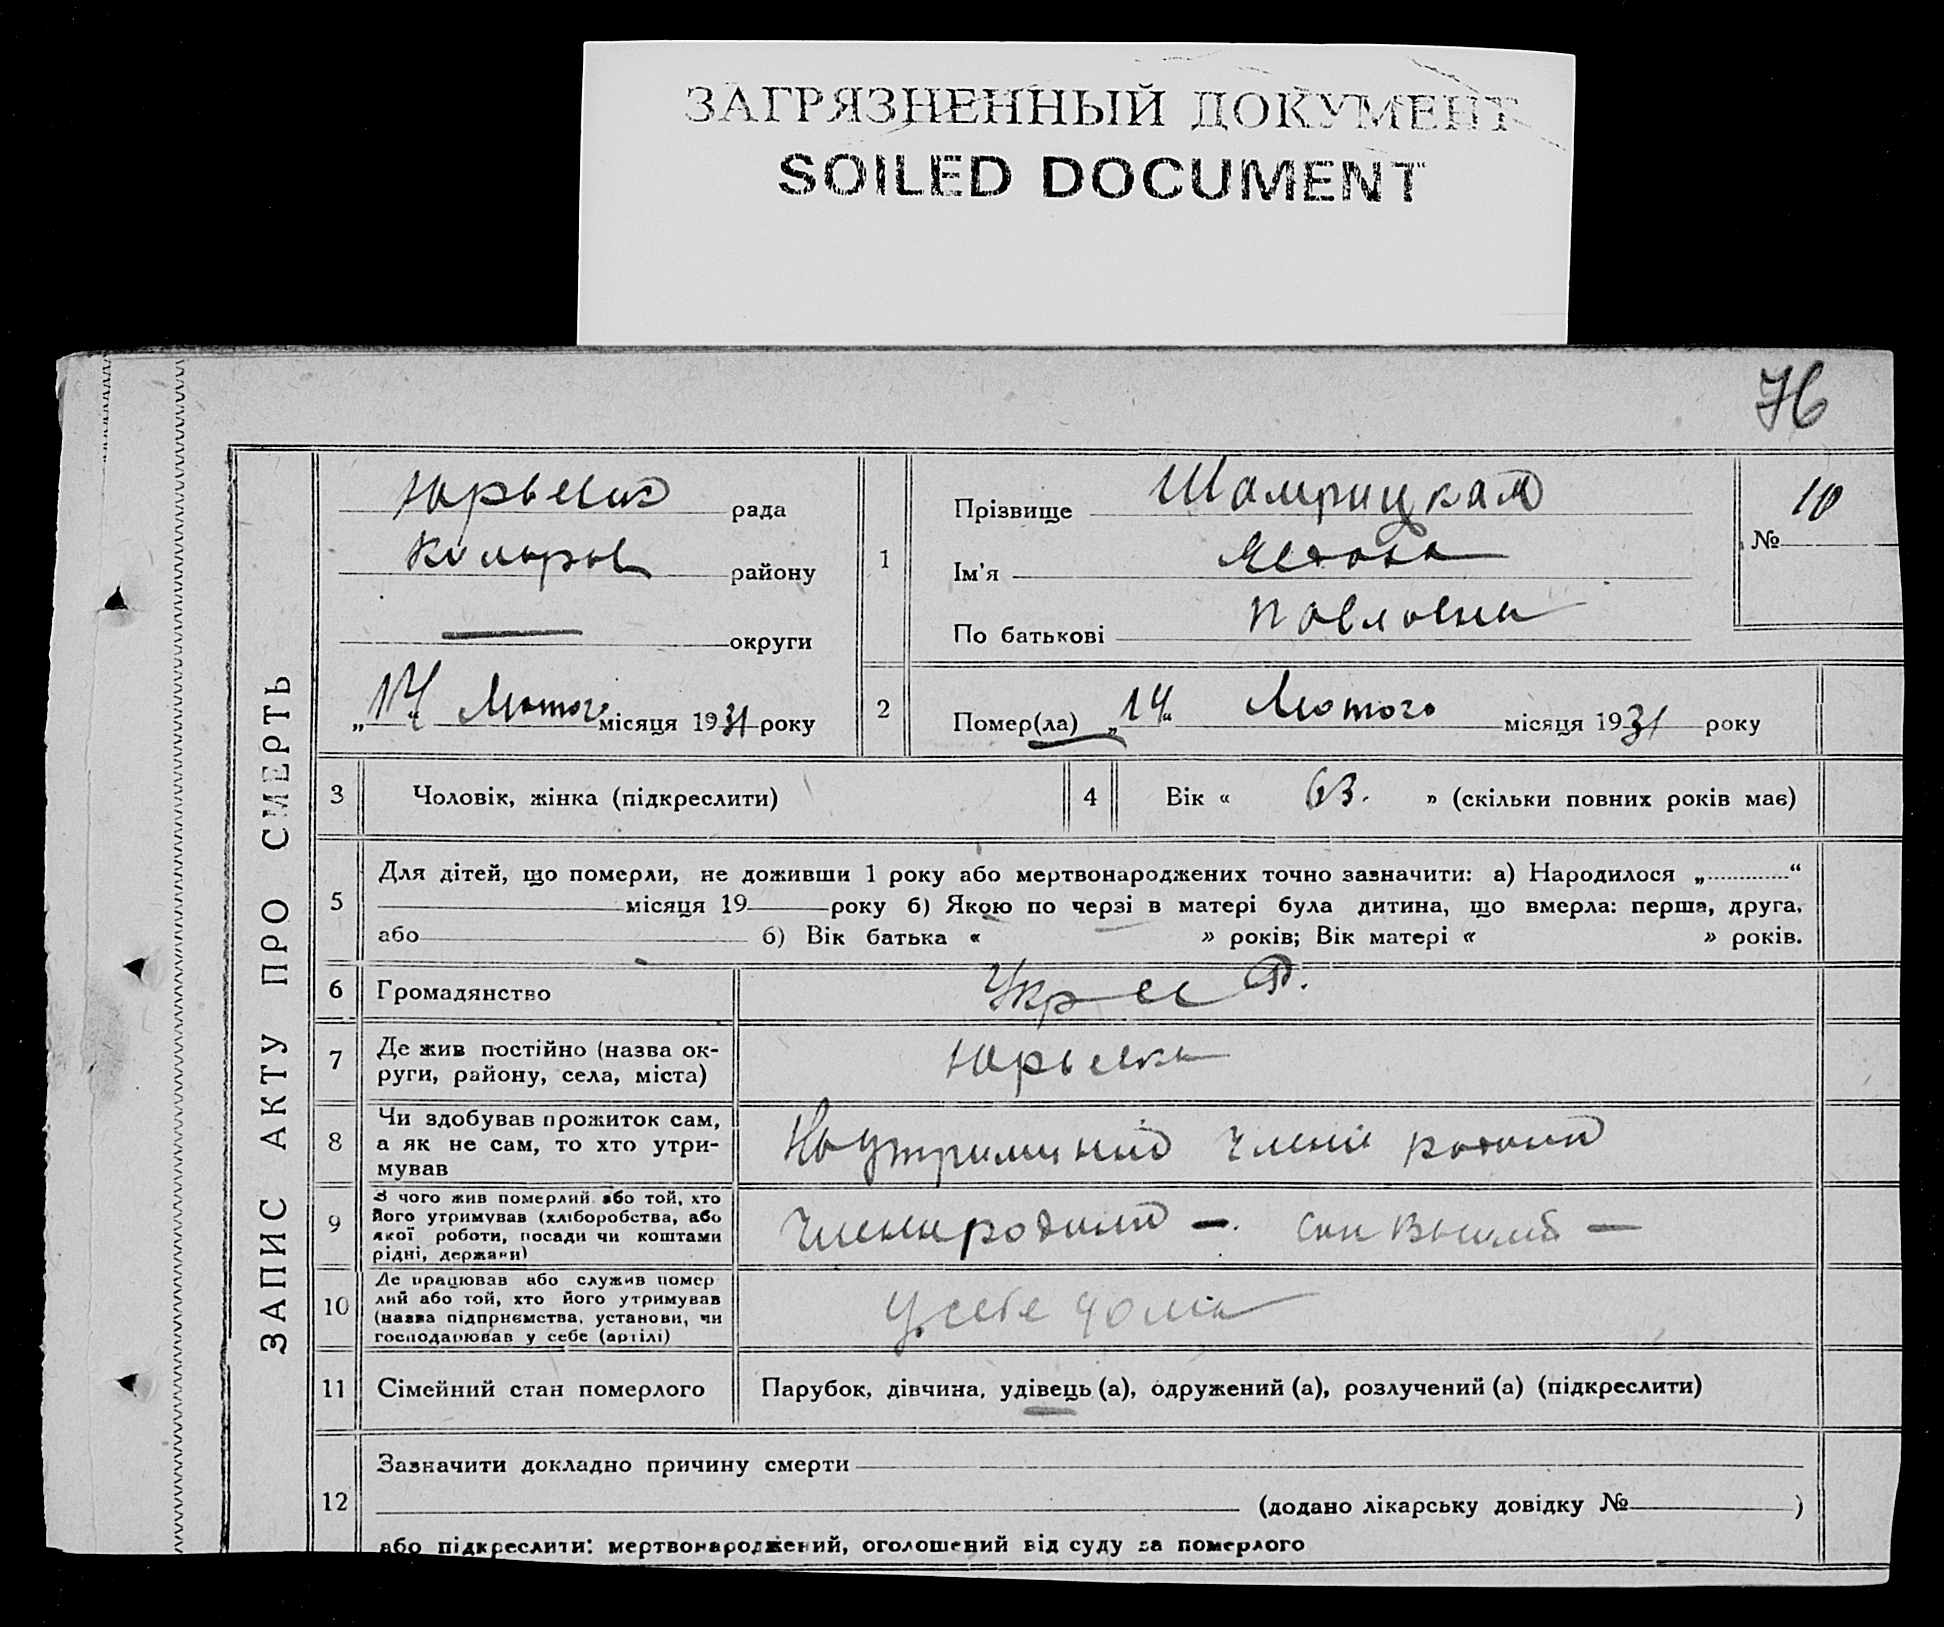 ЗАГРЯЗНЕННЫЙ ДОКУМЕНТ
SOILED DOCUMENT
76
ЗАПИС АКТУ ПРО СМЕРТЬ
рада
району
округи
„14“ Лютого місяця 1931 року
1
Прізвище
Ім'я
По батькові Павловна
№ 10
2
Помер(ла) „14“ Лютого місяця 1931 року
3 Чоловік, жінка (підкреслити)
4 Вік « 63. » (скільки повних років має)
5 Для дітей, що померли, не доживши 1 року або мертвонароджених точно зазначити: а) Народилося „ “
місяця 19 року б) Якою по черзі в матері була дитина, що вмерла: перша, друга,
або б) Вік батька « » років; Вік матері « » років.
6 Громадянство
7 Де жив постійно (назва ок-
руги, району, села, міста)
8 Чи здобував прожиток сам,
а як не сам, то хто утри-
мував
9 З чого жив померлий або той, хто
його утримував (хліборобства, або
якої роботи, посади чи коштами
рідні, держави)
10 Де працював або служив помер
лий або той, хто його утримував
(назва підприємства, установи, чи
господарював у себе (артілі)
у себе дома
11 Сімейний стан померлого Парубок, дівчина, удівець (а), одружений (а), розлучений (а) (підкреслити)
12 Зазначити докладно причину смерти
(додано лікарську довідку № )
або підкреслити: мертвонароджений, оголошений від суду за померлого